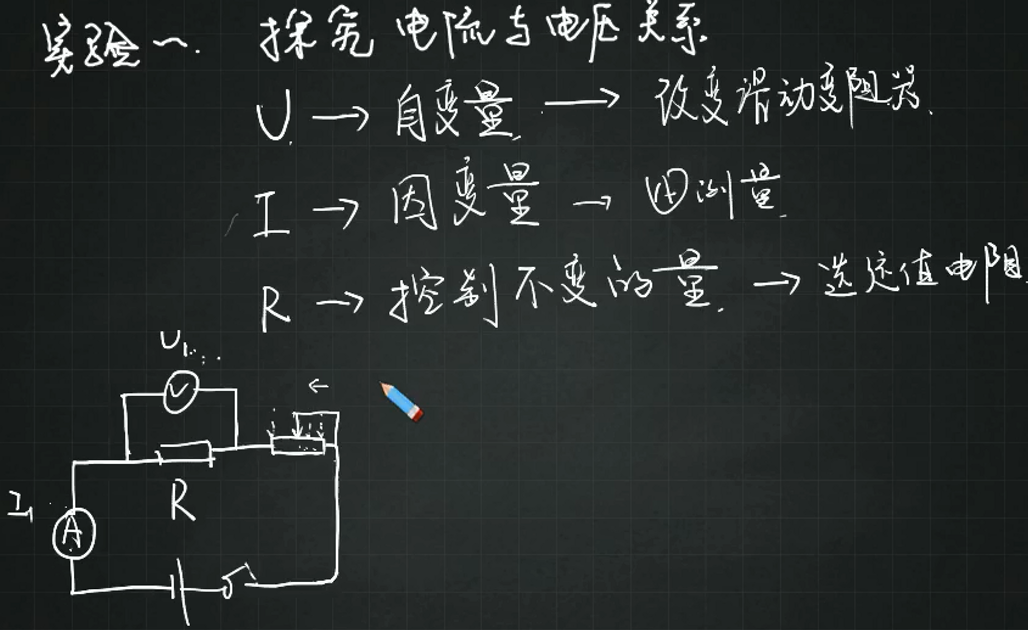 实验一. 探究电流与电压关系
U → 自变量. → 改变滑动变阻器.
I → 因变量 → 测量.
R → 控制不变的量. → 选定值电阻.
U₁
V
←
R
I₁
A